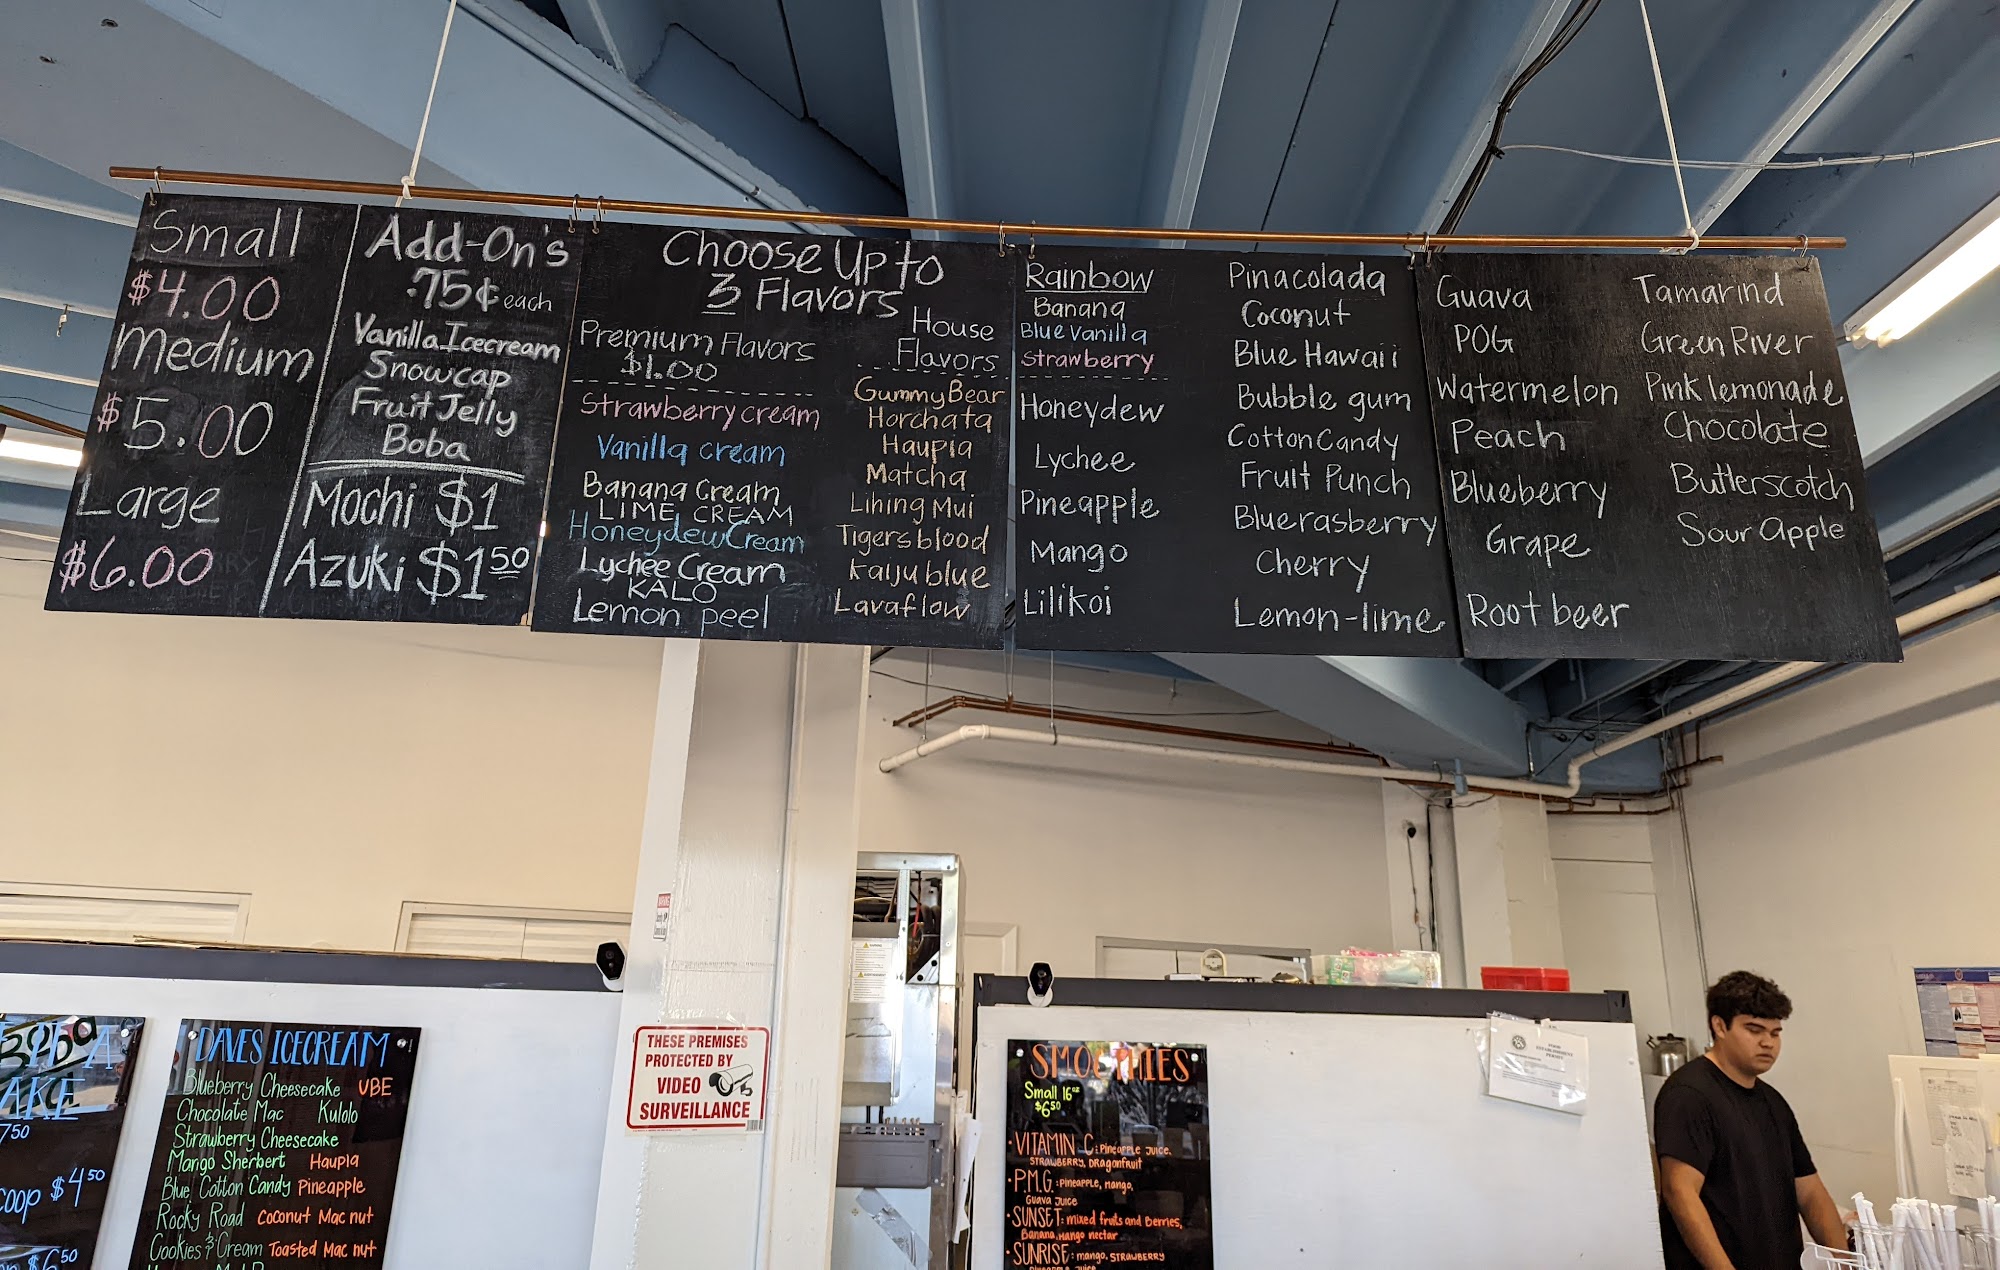 Small
$4.00
Medium
$5.00
Large
$6.00
Add-On's
.75¢ each
Vanilla Icecream
Snowcap
Fruit Jelly
Boba
Mochi $1
Azuki $1.50
Choose Up to
3 Flavors
Premium Flavors
$1.00
Strawberry cream
Vanilla cream
Banana Cream
LIME CREAM
Honeydew Cream
Lychee Cream
KALO
Lemon peel
House
Flavors
Gummy Bear
Horchata
Haupia
Matcha
Lihing Mui
Tigers blood
Kaiju blue
Lavaflow
Rainbow
Banana
Blue Vanilla
Strawberry
Honeydew
Lychee
Pineapple
Mango
Lilikoi
Pinacolada
Coconut
Blue Hawaii
Bubble gum
Cotton Candy
Fruit Punch
Bluerasberry
Cherry
Lemon-lime
Guava
POG
Watermelon
Peach
Blueberry
Grape
Root beer
Tamarind
Green River
Pink lemonade
Chocolate
Butterscotch
Sour Apple
Boba
7 50
$4 50
$6 50
DAVES ICECREAM
Blueberry Cheesecake UBE
Chocolate Mac Kulolo
Strawberry Cheesecake
Mango Sherbert Haupia
Blue Cotton Candy Pineapple
Rocky Road Coconut Mac nut
Cookies & Cream Toasted Mac nut
THESE PREMISES
PROTECTED BY
VIDEO
SURVEILLANCE
SMOOTHIES
Small 16oz
$6 50
• VITAMIN C: Pineapple Juice,
STRAWBERRY, Dragonfruit
• P.M.G.: Pineapple, mango,
Guava Juice
• SUNSET: mixed fruits and Berries,
Banana, Mango nectar
• SUNRISE: mango, STRAWBERRY
FOOD
ESTABLISHMENT
PERMIT